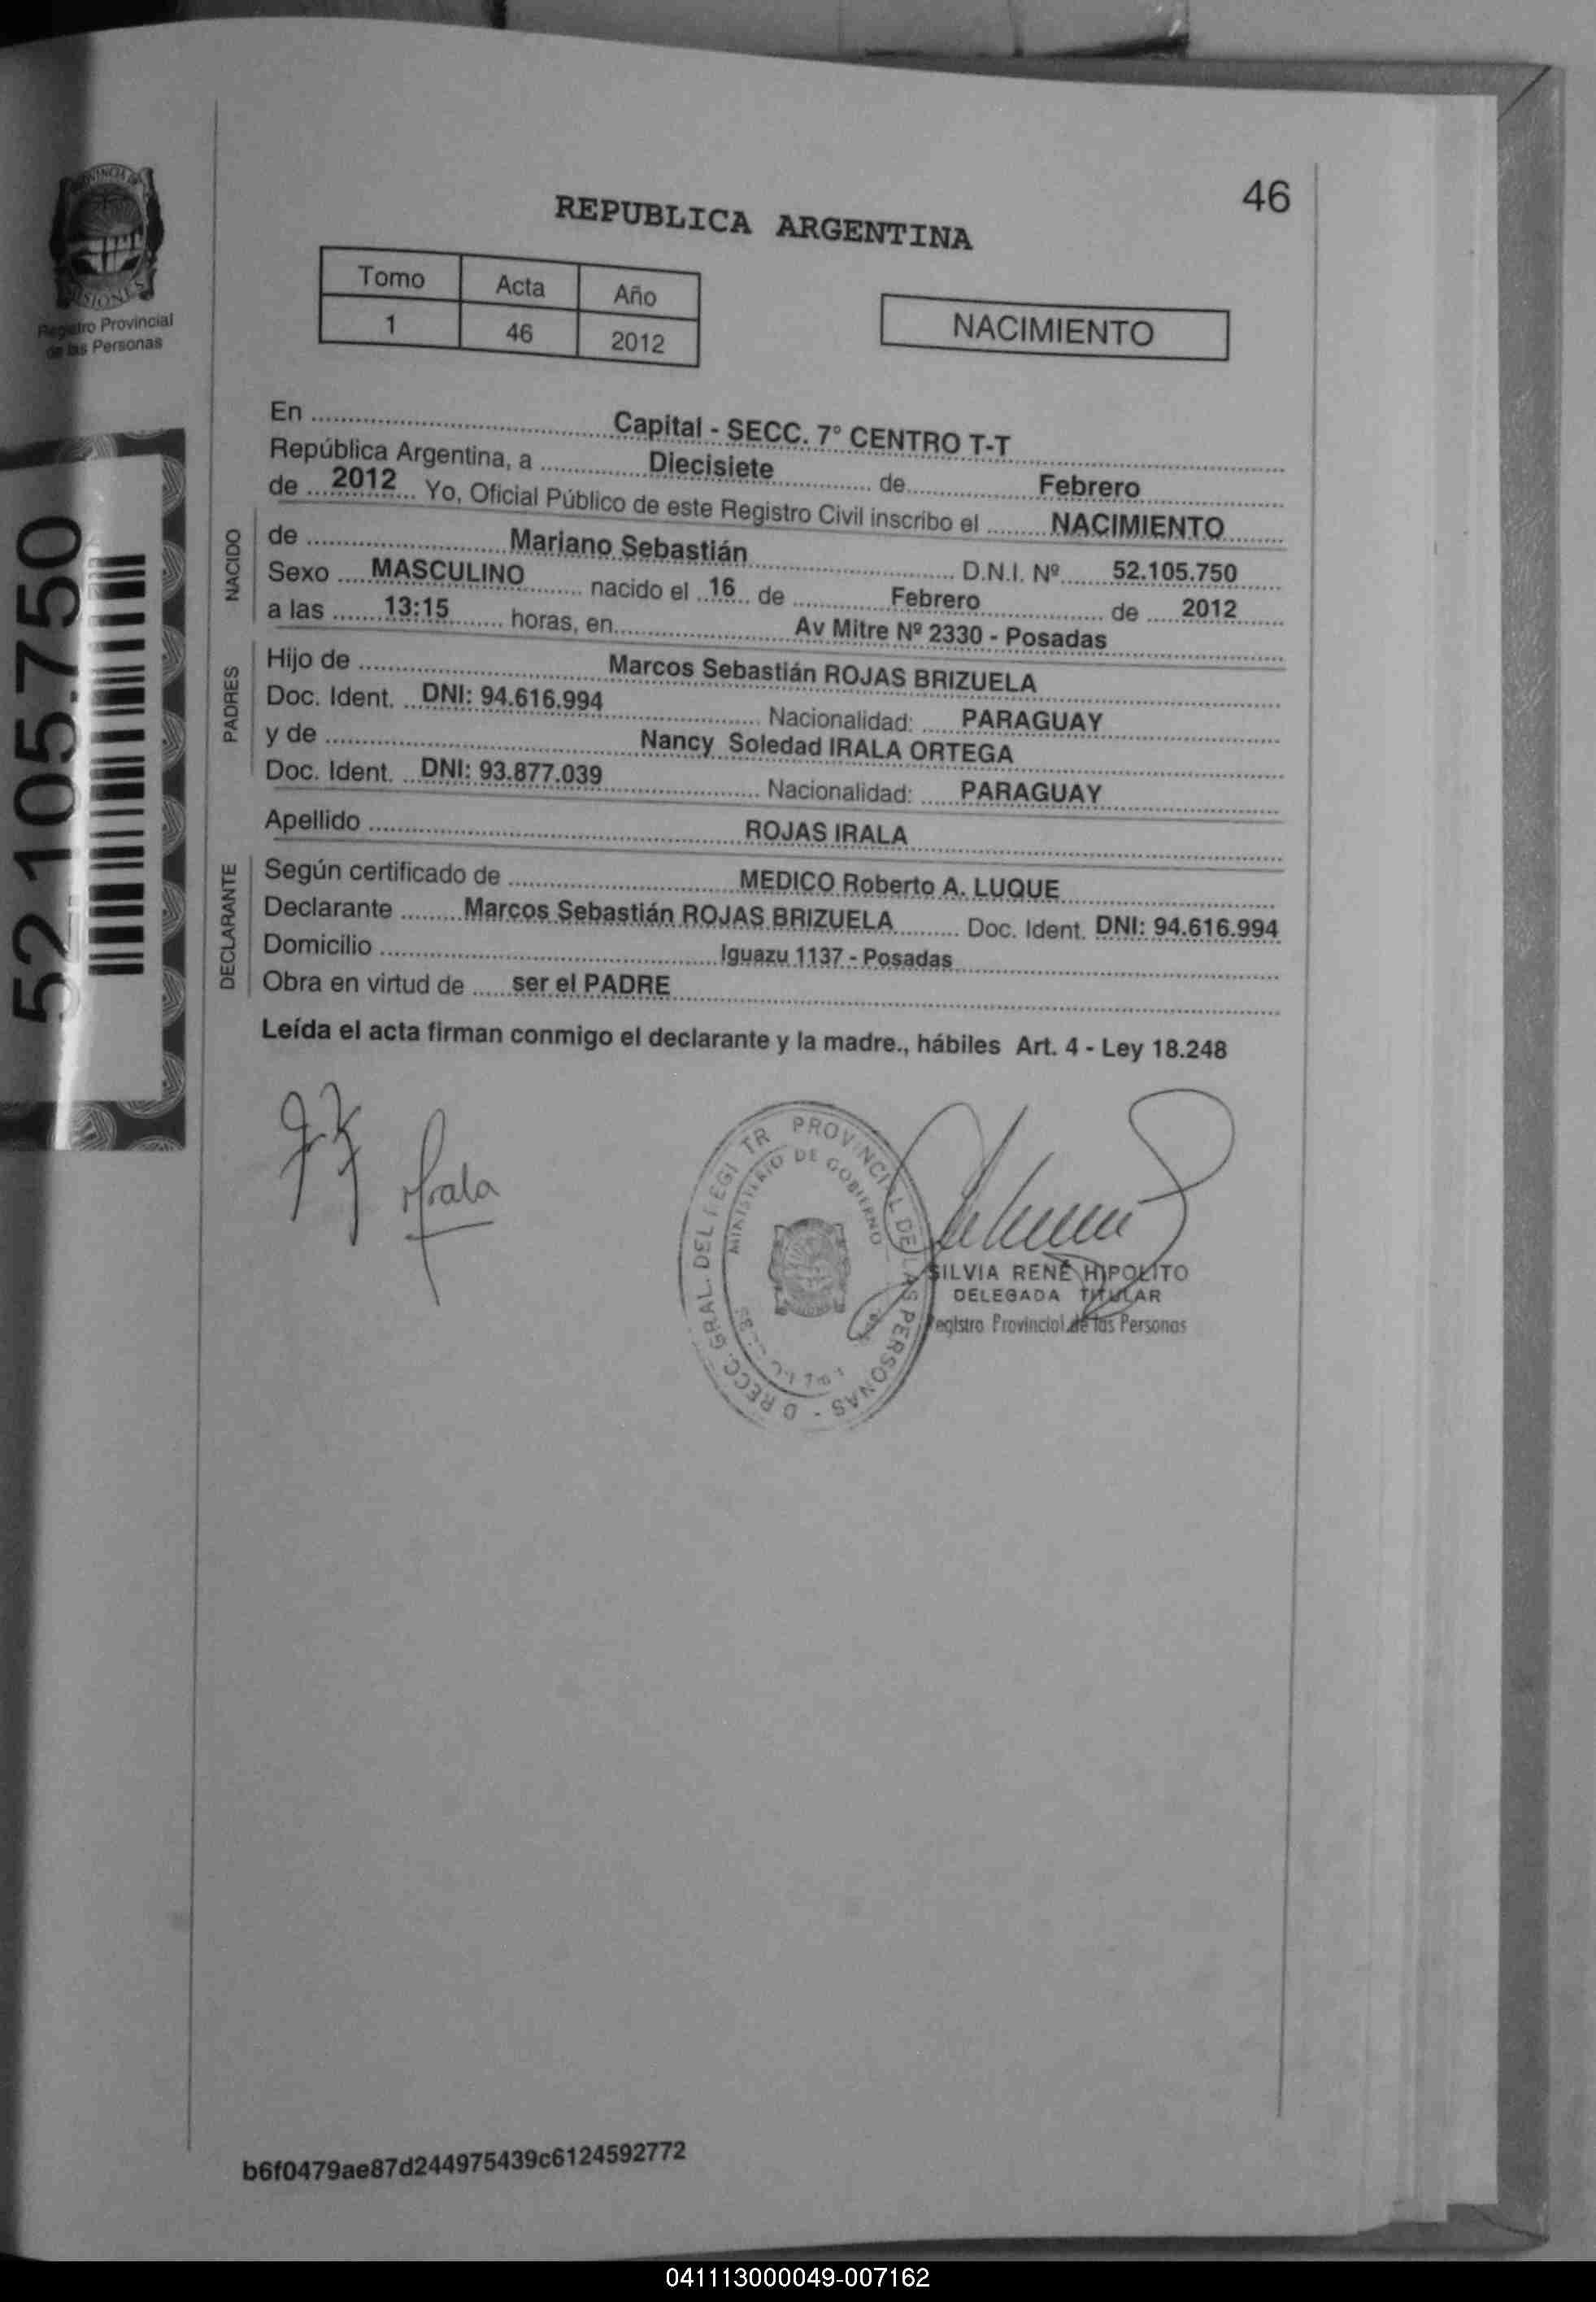 46
REPUBLICA ARGENTINA
PROVINCIA DE
MISIONES
Registro Provincial
de las Personas
Tomo Acta Año
1 46 2012
NACIMIENTO
52.105.750
En Capital - SECC. 7° CENTRO T-T
República Argentina, a Diecisiete de Febrero
de 2012 Yo, Oficial Público de este Registro Civil inscribo el NACIMIENTO
NACIDO
de Mariano Sebastián D.N.I. Nº 52.105.750
Sexo MASCULINO nacido el 16 de Febrero de 2012
a las 13:15 horas, en Av Mitre Nº 2330 - Posadas
PADRES
Hijo de Marcos Sebastián ROJAS BRIZUELA
Doc. Ident. DNI: 94.616.994 Nacionalidad: PARAGUAY
y de Nancy Soledad IRALA ORTEGA
Doc. Ident. DNI: 93.877.039 Nacionalidad: PARAGUAY
Apellido ROJAS IRALA
DECLARANTE
Según certificado de MEDICO Roberto A. LUQUE
Declarante Marcos Sebastián ROJAS BRIZUELA Doc. Ident. DNI: 94.616.994
Domicilio Iguazu 1137 - Posadas
Obra en virtud de ser el PADRE
Leída el acta firman conmigo el declarante y la madre., hábiles Art. 4 - Ley 18.248
PROVINCIAL DE LAS PERSONAS
MINISTERIO DE GOBIERNO
SILVIA RENÉ HIPOLITO
DELEGADA TITULAR
Registro Provincial de las Personas
b6f0479ae87d244975439c6124592772
041113000049-007162